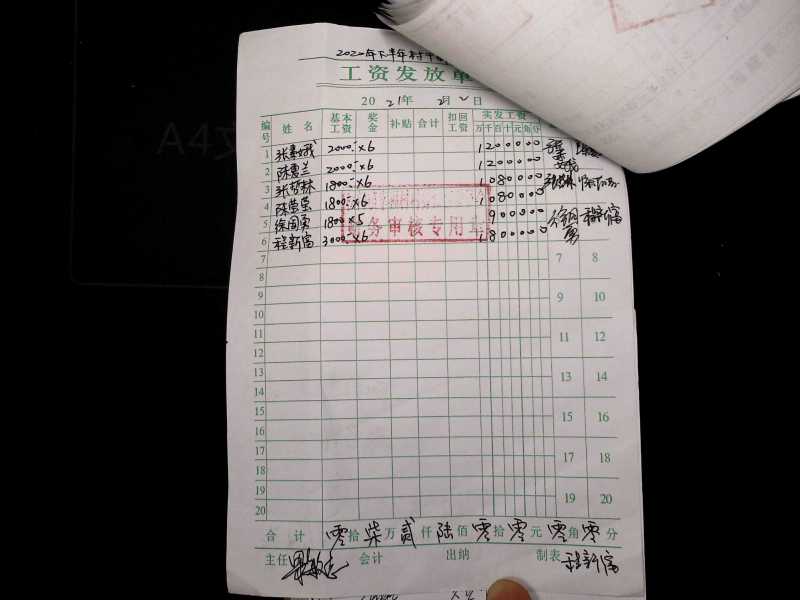 2020年下半年村干
工资发放单
2021年 2月 2日
编号 姓名 基本工资 奖金 补贴 合计 扣回工资 实发工资
万 千 百 十 元 角 分
1 2000.-×6 1 2 0 0 0 0 0
2 陈惠兰 2000.-×6 1 2 0 0 0 0 0
3 张哲林 1800.-×6 1 0 8 0 0 0 0
4 陈莹莹 1800.-×6 1 0 8 0 0 0 0
5 徐国勇 1800×5 9 0 0 0 0 0
6 程新富 3000.-×6 1 8 0 0 0 0 0
务审核专用章
徐国勇 程新富
7 7 8
8
9 9 10
10
11 11 12
12
13 13 14
14
15 15 16
16
17 17 18
18
19 19 20
20
合计 零拾柒万贰仟陆佰零拾零元零角零分
主任 会计 出纳 制表 程新富